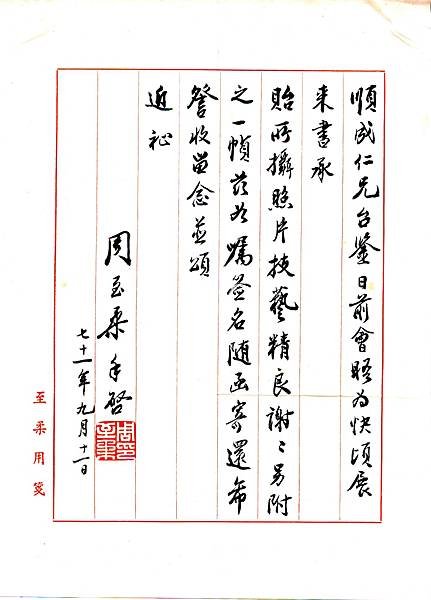 順成仁兄台鑒日前會晤為快頃展
來書承
貽所攝照片技藝精良謝〻另附
之一幀茲如囑簽名隨函寄還希
詧收留念並頌
近祉
周至柔手啓
七十一年九月十二日
周至柔印
至柔用箋